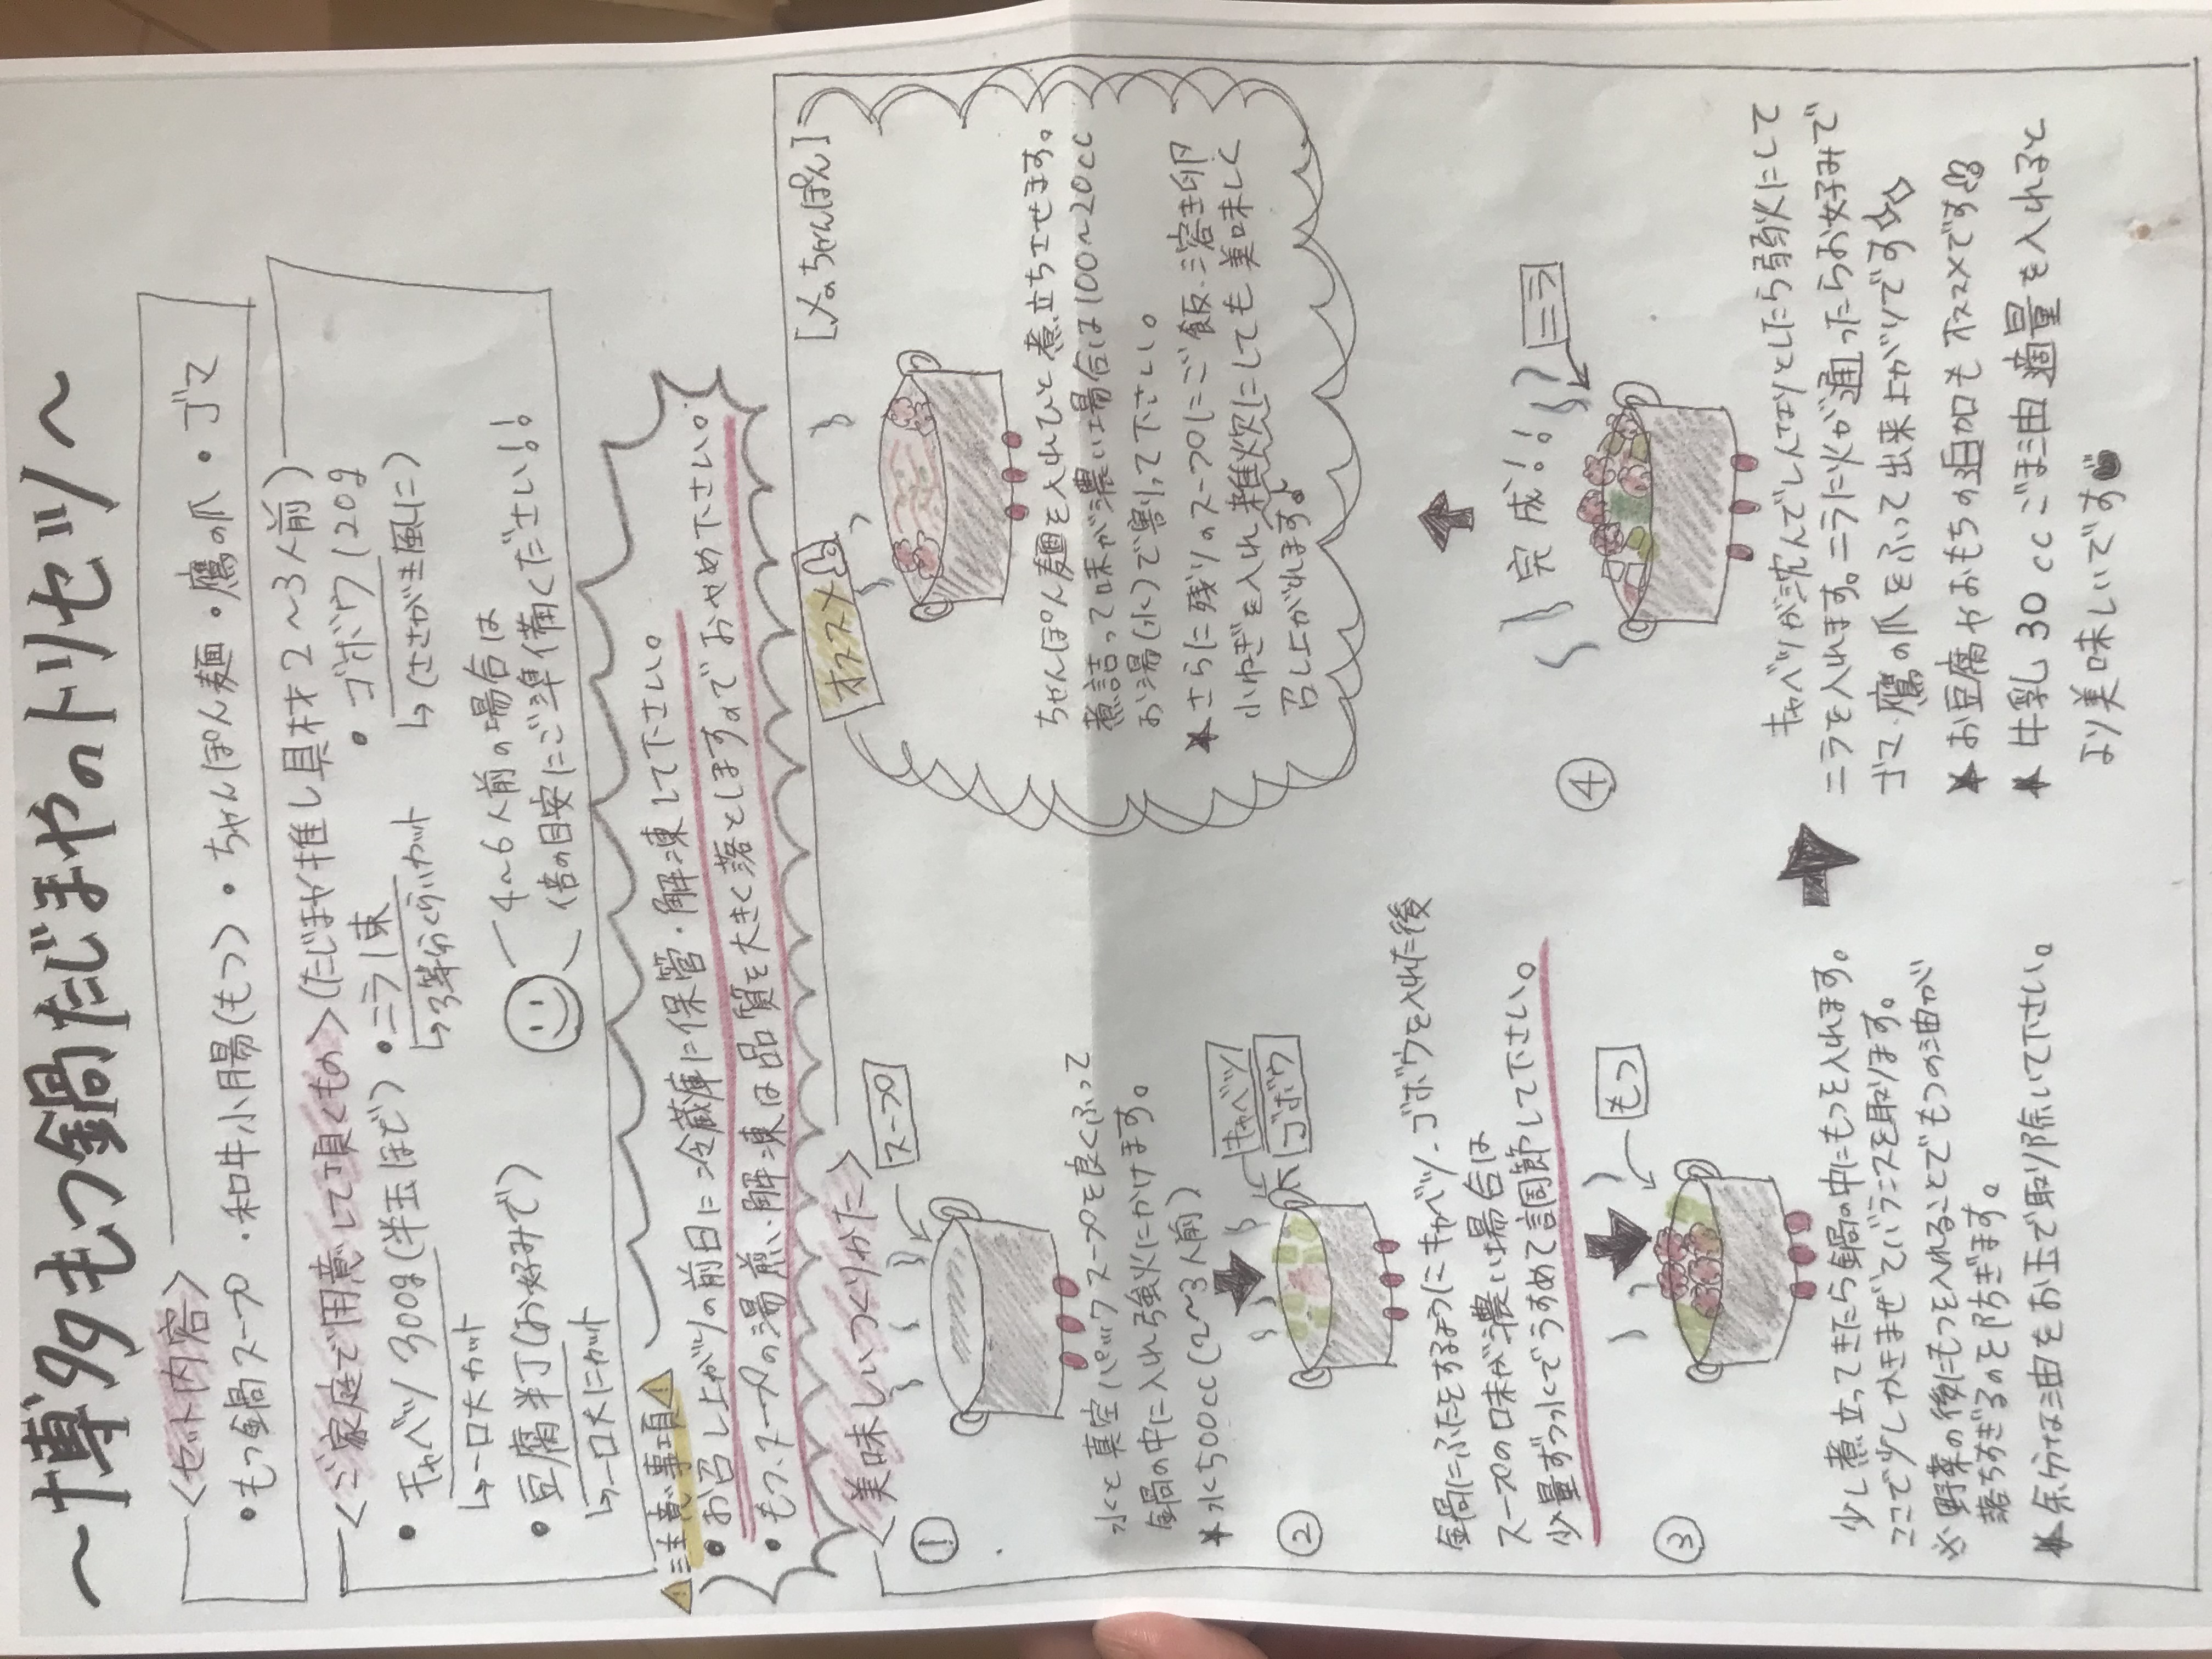 ～博多もつ鍋たじまやのトリセツ～
〈セット内容〉
・もつ鍋スープ ・和牛小腸(もつ) ・ちゃんぽん麺 ・鷹の爪 ・ゴマ
〈ご家庭で用意して頂くもの〉(たじまや推し具材2～3人前)
・キャベツ300g(半玉ほど)
↳一口大カット
・ニラ1束
↳3等分ぐらいカット
・ゴボウ120g
↳(ささがき風に)
・豆腐半丁(お好みで)
↳一口大にカット
4～6人前の場合は
倍の目安にご準備ください!!
⚠注意事項⚠
・お召し上がりの前日に冷蔵庫に保管・解凍して下さい。
・もつ、スープの湯煎、解凍は品質を大きく落としますのでおやめ下さい。
〈美味しいつくりかた〉
①
スープ
水と真空パックスープを良くふって
鍋の中に入れ強火にかけます。
★水500cc(2～3人前)
②
キャベツ
ゴボウ
鍋にふたをするようにキャベツ、ゴボウを入れた後
スープの味が濃い場合は
少量ずつ水でうすめて調節して下さい。
③
もつ
少し煮立ってきたら鍋の中にもつを入れます。
ここで少しかきまぜてバランスを取ります。
※野菜の後にもつを入れることでもつの油が
落ちすぎるのを防ぎます。
★余分な油をお玉で取り除いて下さい。
④
完成!!
ニラ
キャベツが沈んでしんなりとしたら弱火にして
ニラを入れます。ニラに火が通ったらお好みで
ゴマ・鷹の爪をふって出来上がりです
★お豆腐やおもちの追加もオススメです
★牛乳30ccごま油適量を入れると
より美味しいです
オススメ
[〆のちゃんぽん]
ちゃんぽん麺を入れひと煮立ちさせます。
煮詰って味が濃い場合は100～20cc
お湯(水)で割って下さい。
★さらに残りのスープにご飯、溶き卵
小ねぎを入れ雑炊にしても美味しく
召し上がれます。